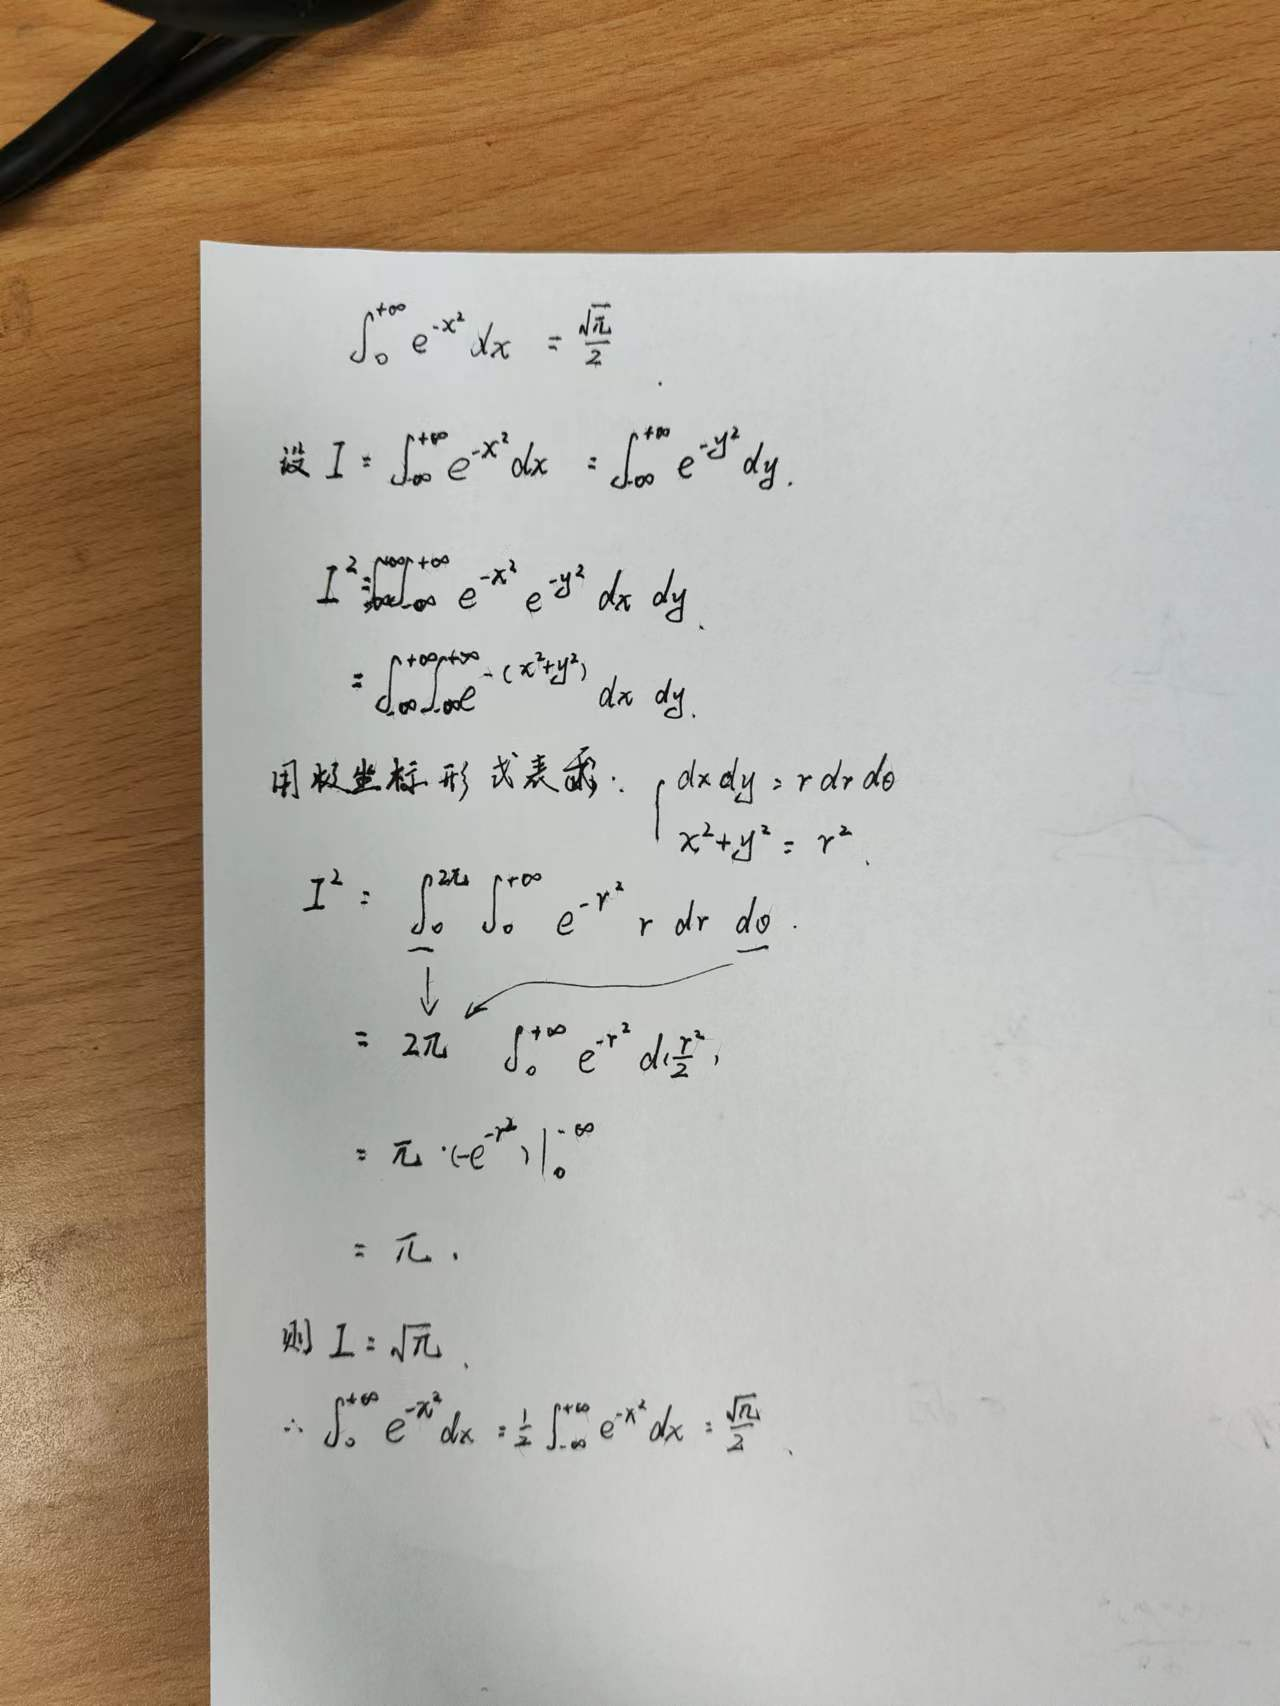 ∫₀^{+∞} e^{-x²} dx = √π/2
设 I = ∫_{-∞}^{+∞} e^{-x²} dx = ∫_{-∞}^{+∞} e^{-y²} dy.
I² = ∫_{-∞}^{+∞} ∫_{-∞}^{+∞} e^{-x²} e^{-y²} dx dy.
= ∫_{-∞}^{+∞} ∫_{-∞}^{+∞} e^{-(x²+y²)} dx dy.
用极坐标形式表示: { dx dy = r dr dθ
x²+y² = r².
I² = ∫₀^{2π} ∫₀^{+∞} e^{-r²} r dr dθ.
= 2π ∫₀^{+∞} e^{-r²} d(r²/2)
= π·(-e^{-r²})|₀^{-∞}
= π.
则 I = √π.
∴ ∫₀^{+∞} e^{-x²} dx = 1/2 ∫_{-∞}^{+∞} e^{-x²} dx = √π/2.